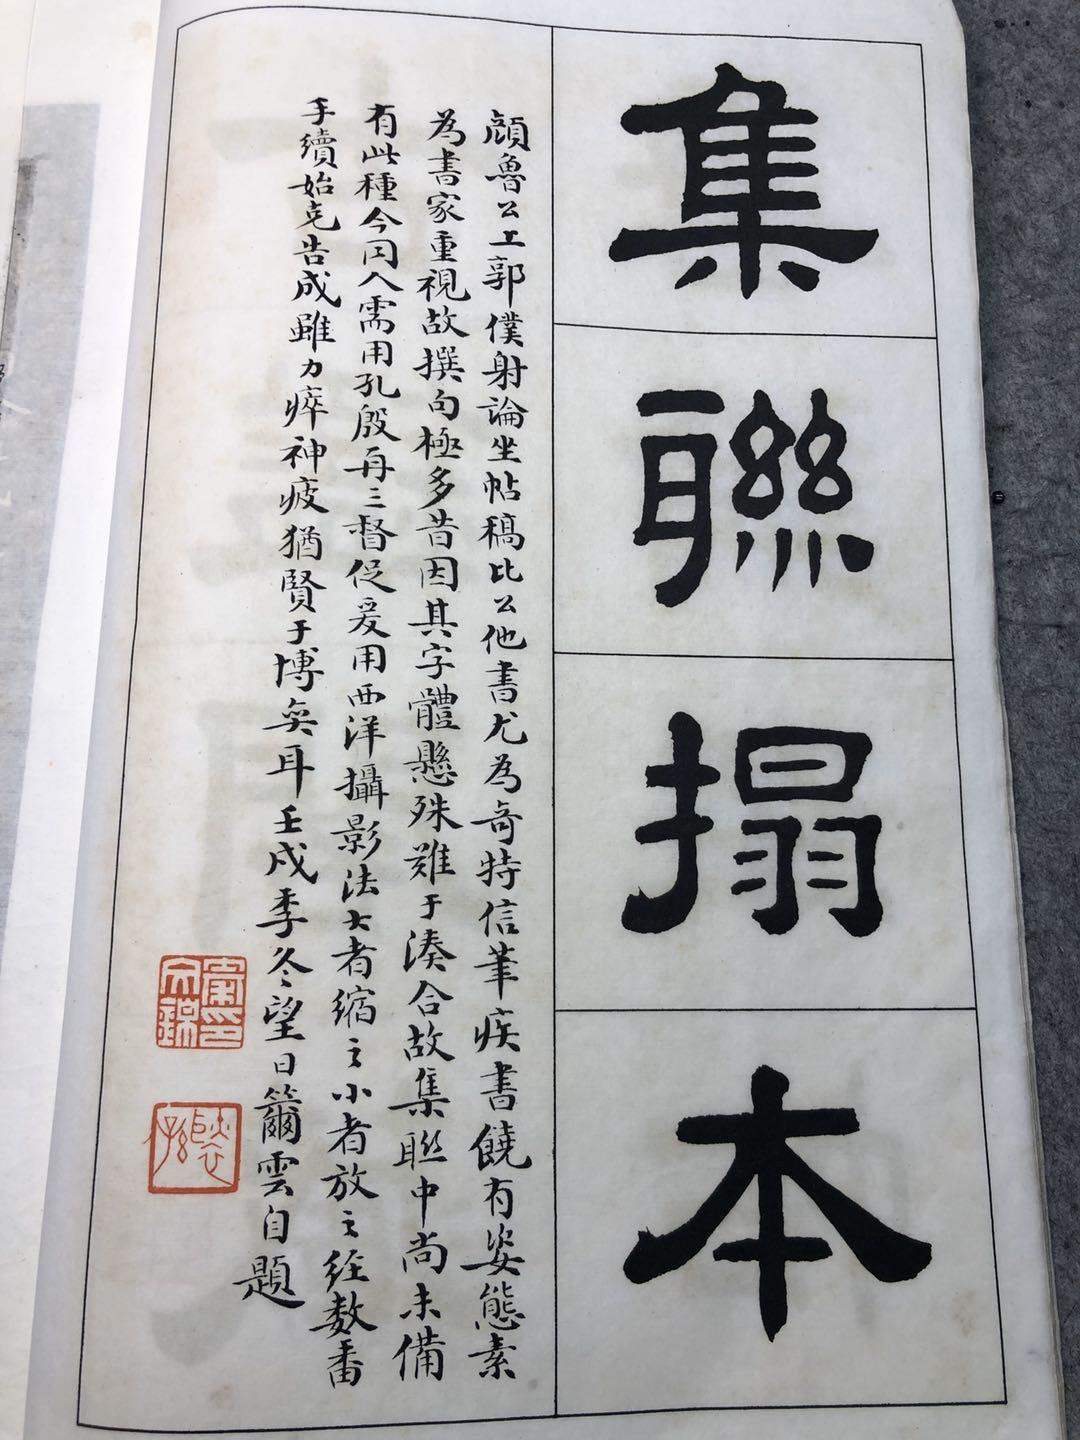 集聯搨本
顔魯公上郭僕射論坐帖稿比公他書尤為奇特信筆疾書饒有姿態素
為書家重視故撰句極多昔因其字體懸殊難于湊合故集聯中尚未備
有此種今因人需用孔殷再三督促爰用西洋攝影法大者縮之小者放之經数番
手續始克告成雖力瘁神疲猶賢于博奕耳壬戌季冬望日籋雲自題